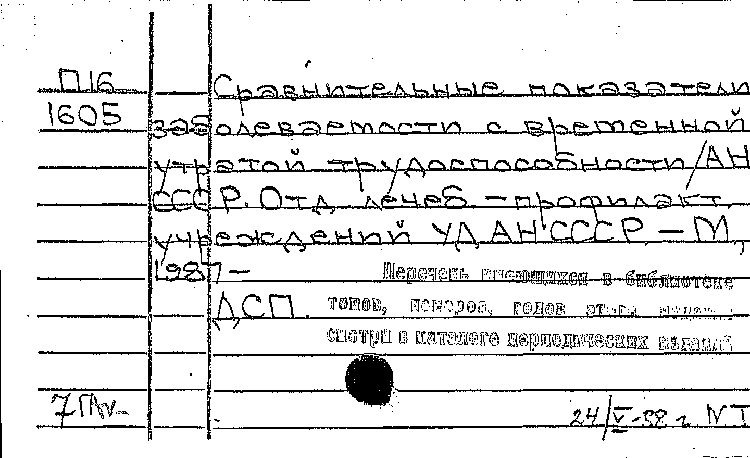 П16 Сравнительные показатели
1605 заболеваемости с временной
утратой трудоспособности /АН
СССР. Отд. лечеб.-профилакт.
учреждений УД АН СССР. - М.,
1987 -
Перечень имеющихся в библиотеке
ДСП. томов, номеров, годов этого
смотри в каталоге периодических изданий
24/V-88 г. NI